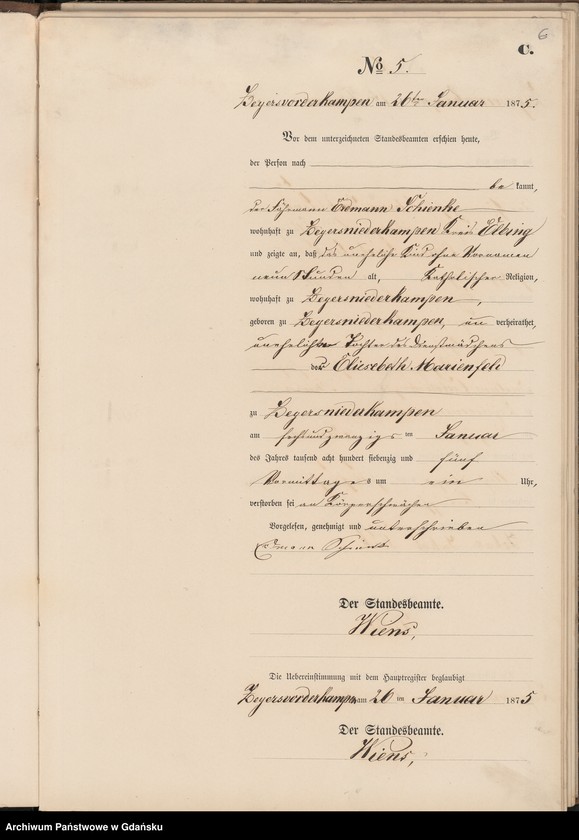 6
C.
No 5.
Zeyersvorderkampen am 26ten Januar 1875.
Vor dem unterzeichneten Standesbeamten erschien heute,
der Person nach
be kannt,
der Fährmann Erdmann Schienke
wohnhaft zu Zeyersniederkampen Kreis Elbing
und zeigte an, daß das uneheliche Kind ohne Vornamen
neun Stunden alt, Katholischer Religion,
wohnhaft zu Zeyersniederkampen,
geboren zu Zeyersniederkampen, un verheirathet,
uneheliche Tochter des Dienstmädchens
der Eliesebeth Marienfeld
zu Zeyersniederkampen
am sechsundzwanzigs ten Januar
des Jahres tausend acht hundert siebenzig und fünf
Vormittags um ein Uhr,
verstorben sei an Körperschwäche
Vorgelesen, genehmigt und unterschrieben
Der Standesbeamte.
Wiens,
Die Uebereinstimmung mit dem Hauptregister beglaubigt
Zeyersvorderkampen am 26 ten Januar 1875
Der Standesbeamte.
Wiens,
Archiwum Państwowe w Gdańsku